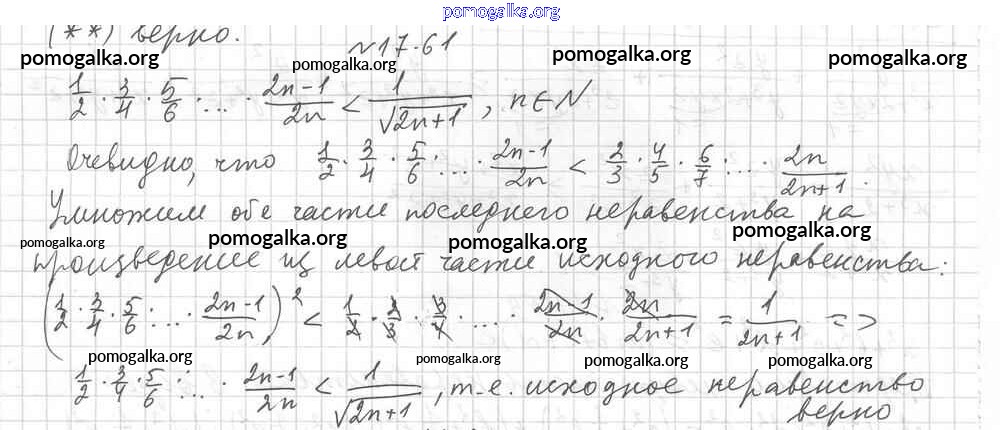 pomogalka.org
(**) верно.
pomogalka.org pomogalka.org pomogalka.org pomogalka.org
№17.61
1/2 · 3/4 · 5/6 · ... · (2n-1)/2n < 1/√(2n+1), n∈N
Очевидно, что 1/2 · 3/4 · 5/6 · ... · (2n-1)/2n < 2/3 · 4/5 · 6/7 · ... · 2n/(2n+1).
Умножим обе части последнего неравенства на
pomogalka.org pomogalka.org pomogalka.org pomogalka.org
произведение из левой части исходного неравенства:
(1/2 · 3/4 · 5/6 · ... · (2n-1)/2n)² < 1/2 · 2/3 · 3/4 · ... · (2n-1)/2n · 2n/(2n+1) = 1/(2n+1) =>
pomogalka.org pomogalka.org pomogalka.org pomogalka.org
1/2 · 3/4 · 5/6 · ... · (2n-1)/2n < 1/√(2n+1), т.е. исходное неравенство
верно